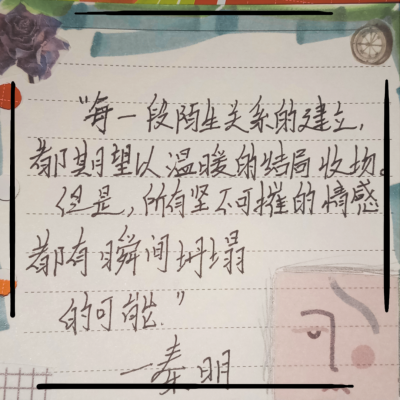 "每一段陌生关系的建立,
都期望以温暖的结局收场。
但是,所有坚不可摧的情感
都有瞬间坍塌
的可能."
—秦明